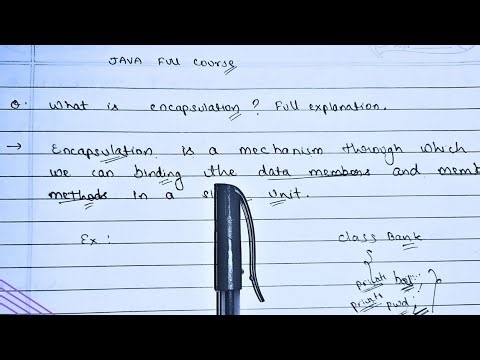 JAVA Full Course
Q. What is encapsulation? Full explanation.
→ Encapsulation is a mechanism through which
we can binding the data members and memb
methods in a unit.
Ex:
class Bank
{
private
private pwd;